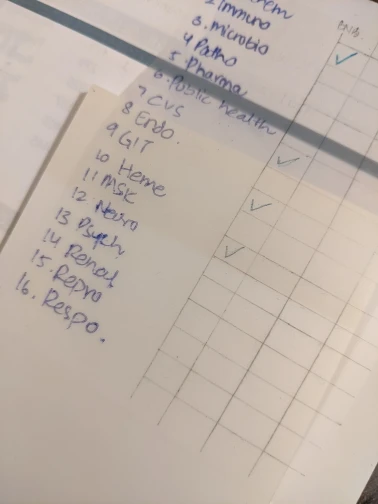 2 Immuno
3. microbio
4 Patho
5. Pharma
6. Public health
7 CVS
8 Endo.
9 GIT
10 Heme
11 MSK
12 Neuro
13 Psych
14 Renal
15. Repro
16. Respo.